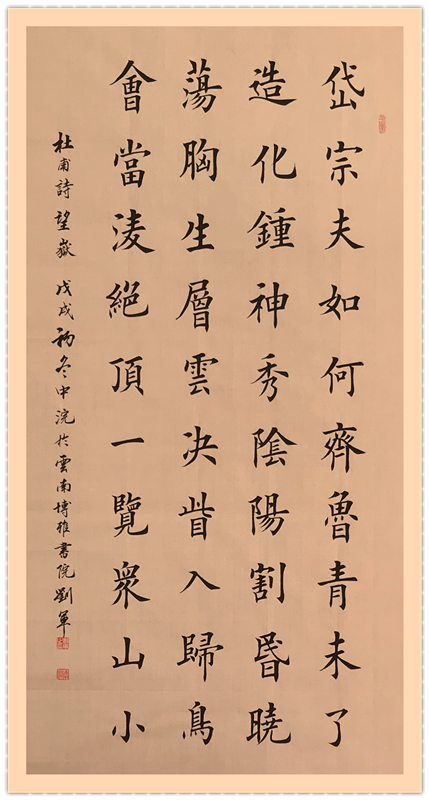 岱宗夫如何齊魯青未了
造化鍾神秀陰陽割昏曉
蕩胸生層雲決眥入歸鳥
會當淩絕頂一覽眾山小
杜甫詩望嶽 戊戌初冬中浣於雲南博雅書院劉軍